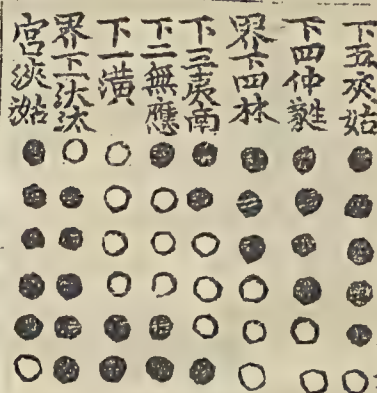 下五夾姑
下四仲蕤
界下四林
下三夷南
下二無應
下一潢
界下一汏汰
宮浹㴌